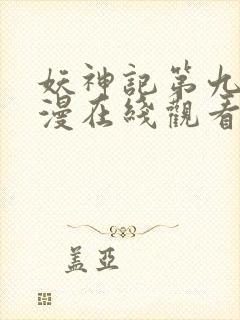 妖神記第九
漫在綫觀看
盖亞